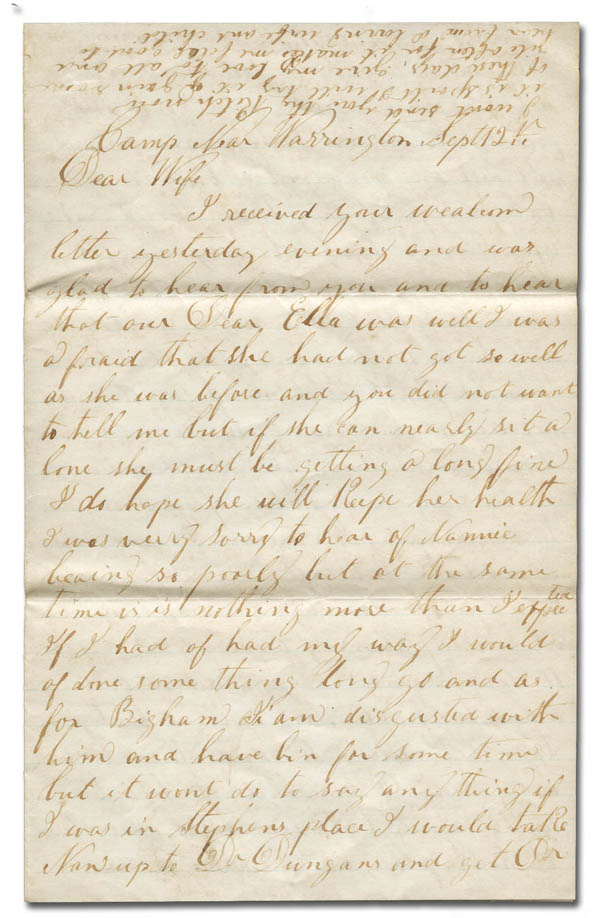 I wont send you the
it is spoilt I will try it again some
of these days, give my love to all and
rite often for it makes me feel good to
hear from a loving wife and child
Camp Near Warrington Sept 12th
Dear Wife
I received your wealcom
letter yesterday evening and was
glad to hear from you and to hear
that our Dear Ella was well I was
a fraid that she had not got so well
as she was before and you did not want
to tell me but if she can nearly sit a
lone she must be getting a long fine
I do hope she will Keepe her health
I was very sorry to hear of Nannie
beaing so poorly but at the same
time is is nothing more than I expected
If I had of had my way I would
of done some thing long go and as
for Bigham I am disgusted with
him and have bin for some time
but it wont do to say any thing if
I was in Stephens place I would take
Nan up to Dr Dungans and get Dr